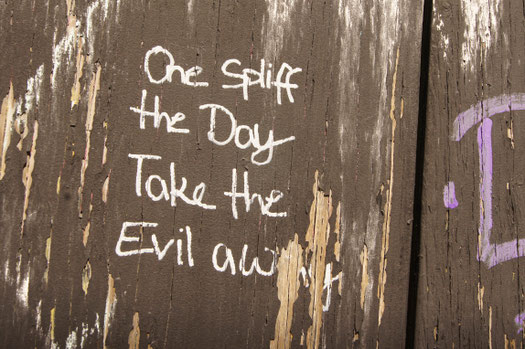 One Spliff
the Day
Take the
Evil away